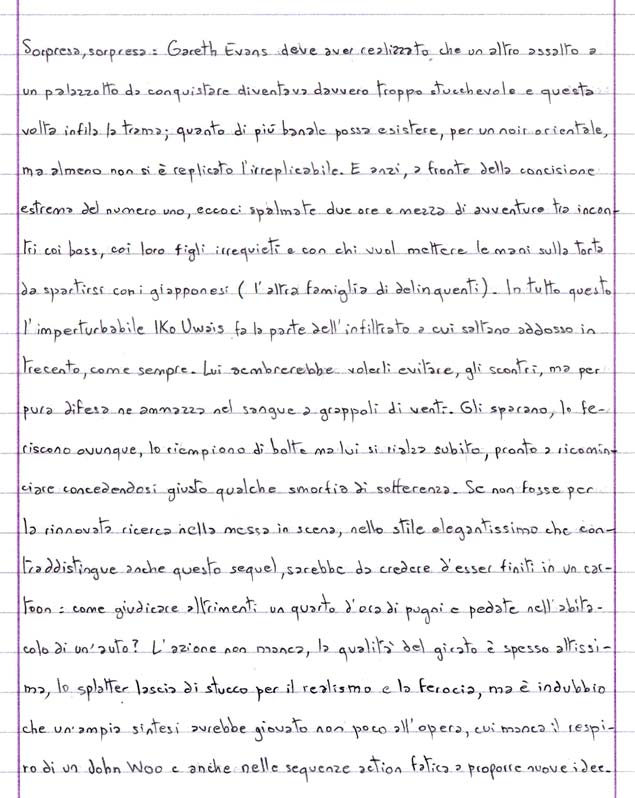 Sorpresa, sorpresa: Gareth Evans deve aver realizzato che un altro assalto a
un palazzotto da conquistare diventava davvero troppo stucchevole e questa
volta infila la trama; quanto di più banale possa esistere, per un noir orientale,
ma almeno non si è replicato l'irreplicabile. E anzi, a fronte della concisione
estrema del numero uno, eccoci spalmate due ore e mezza di avventure tra incon-
tri coi boss, coi loro figli irrequieti e con chi vuol mettere le mani sulla torta
da spartirsi con i giapponesi (l'altra famiglia di delinquenti). In tutto questo
l'imperturbabile IKo Uwais fa la parte dell'infiltrato a cui saltano addosso in
trecento, come sempre. Lui sembrerebbe volerli evitare, gli scontri, ma per
pura difesa ne ammazza nel sangue a grappoli di venti. Gli sparano, lo fe-
riscono ovunque, lo riempiono di botte ma lui si rialza subito, pronto a ricomin-
ciare concedendosi giusto qualche smorfia di sofferenza. Se non fosse per
la rinnovata ricerca nella messa in scena, nello stile elegantissimo che con-
traddistingue anche questo sequel, sarebbe da credere d'esser finiti in un car-
toon: come giudicare altrimenti un quarto d'ora di pugni e pedate nell'abita-
colo di un'auto? L'azione non manca, la qualità del girato è spesso altissi-
ma, lo splatter lascia di stucco per il realismo e la ferocia, ma è indubbio
che un'ampia sintesi avrebbe giovato non poco all'opera, cui manca il respi-
ro di un John Woo e anche nelle sequenze action fatica a proporre nuove idee.